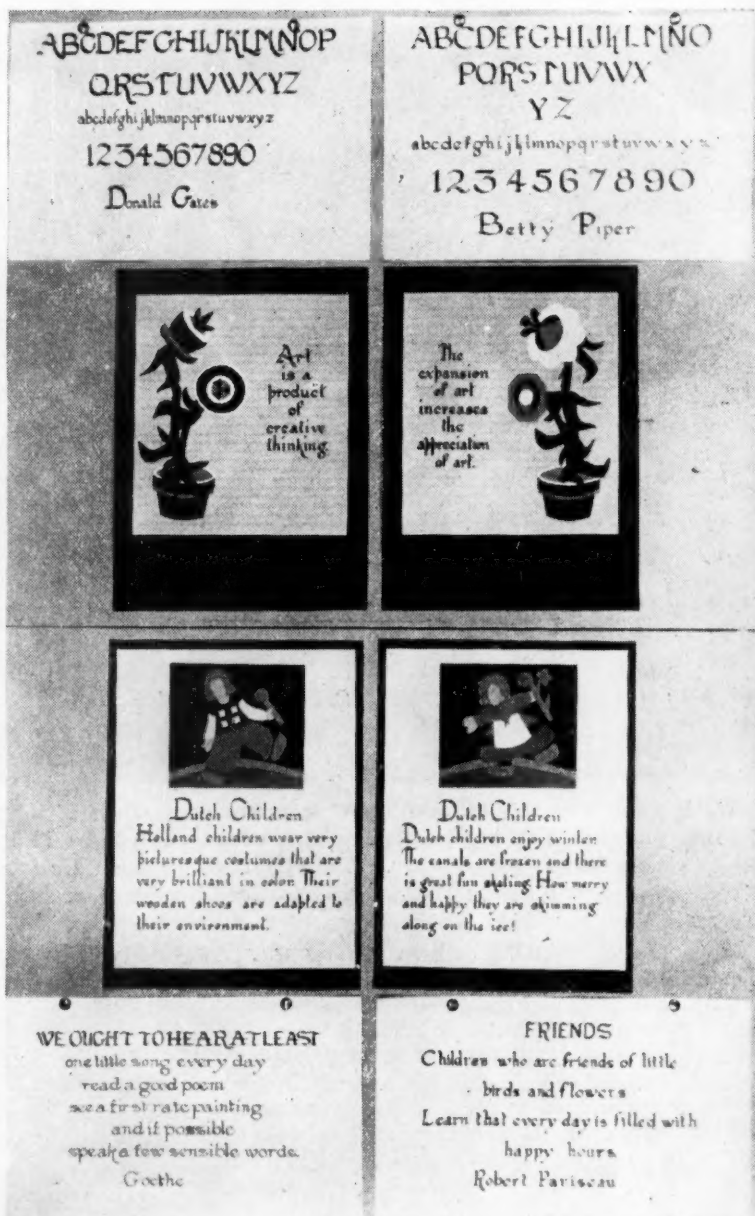 ABCDEFGHIJKLMNOP
QRSTUVWXYZ
abcdefghijklmnopqrstuvwxyz
1234567890
Donald Gates
ABCDEFGHIJKLMNO
PQRSTUVWX
YZ
abcdefghijklmnopqrstuvwxyz
1234567890
Betty Piper
Art
is a
product
of
creative
thinking
The
expansion
of art
increases
the
appreciation
of art.
Dutch Children
Holland children wear very
picturesque costumes that are
very brilliant in color. Their
wooden shoes are adapted to
their environment.
Dutch Children
Dutch children enjoy winter.
The canals are frozen and there
is great fun skating. How merry
and happy they are skimming
along on the ice!
WE OUGHT TO HEAR AT LEAST
one little song every day
read a good poem
see a first rate painting
and if possible
speak a few sensible words.
Goethe
FRIENDS
Children who are friends of little
birds and flowers
Learn that every day is filled with
happy hours
Robert Pariseau